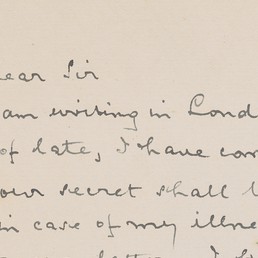 ear Sir
am writing in Lond
of late, I have com
our secret shall b
in case of my illne